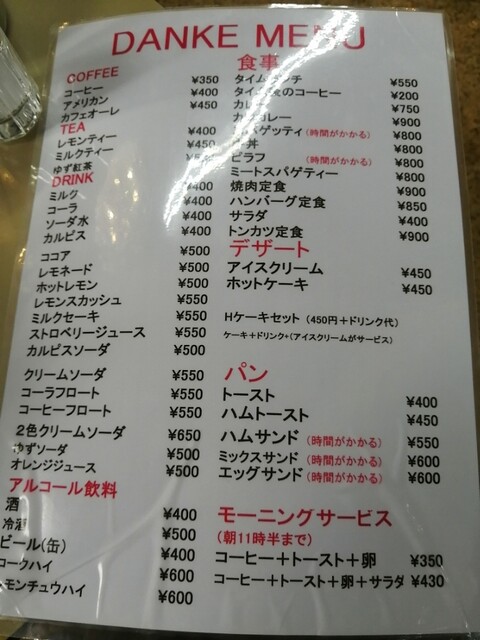 DANKE MENU
COFFEE
コーヒー ¥350
アメリカン ¥400
カフェオーレ ¥450
TEA
レモンティー ¥400
ミルクティー ¥450
ゆず紅茶
DRINK
ミルク ¥400
コーラ ¥400
ソーダ水 ¥400
カルピス ¥400
ココア ¥500
レモネード ¥500
ホットレモン ¥500
レモンスカッシュ ¥550
ミルクセーキ ¥550
ストロベリージュース ¥550
カルピスソーダ ¥500
クリームソーダ ¥550
コーラフロート ¥550
コーヒーフロート ¥550
2色クリームソーダ ¥650
ゆずソーダ ¥500
オレンジジュース ¥500
アルコール飲料
酒 ¥400
冷酒 ¥500
ビール(缶) ¥400
コークハイ ¥600
モンチュウハイ ¥600
食事
タイムランチ ¥550
のコーヒー ¥200
カレー ¥750
カツカレー ¥900
パゲッティ (時間がかかる) ¥800
丼 ¥800
ピラフ (時間がかかる) ¥800
ミートスパゲティー ¥800
焼肉定食 ¥900
ハンバーグ定食 ¥850
サラダ ¥400
トンカツ定食 ¥900
デザート
アイスクリーム ¥450
ホットケーキ ¥450
Hケーキセット (450円+ドリンク代)
ケーキ+ドリンク+(アイスクリームがサービス)
パン
トースト ¥400
ハムトースト ¥450
ハムサンド (時間がかかる) ¥550
ミックスサンド (時間がかかる) ¥600
エッグサンド (時間がかかる) ¥600
モーニングサービス
(朝11時半まで)
コーヒー+トースト+卵 ¥350
コーヒー+トースト+卵+サラダ ¥430